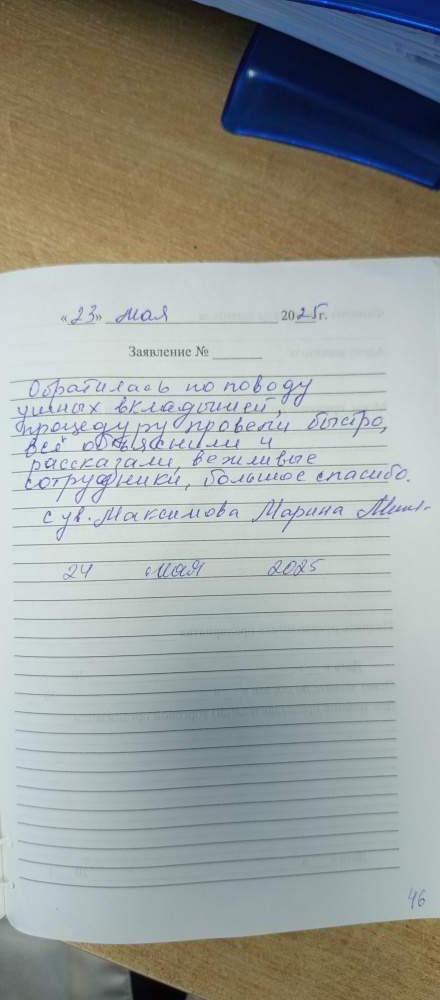 «23» мая 2025г.
Заявление №
Обратилась по поводу
ушных вкладышей,
процедуру провели быстро,
всё объяснили и
рассказали, вежливые
сотрудники, большое спасибо.
с ув. Максимова Марина
24 мая 2025
46